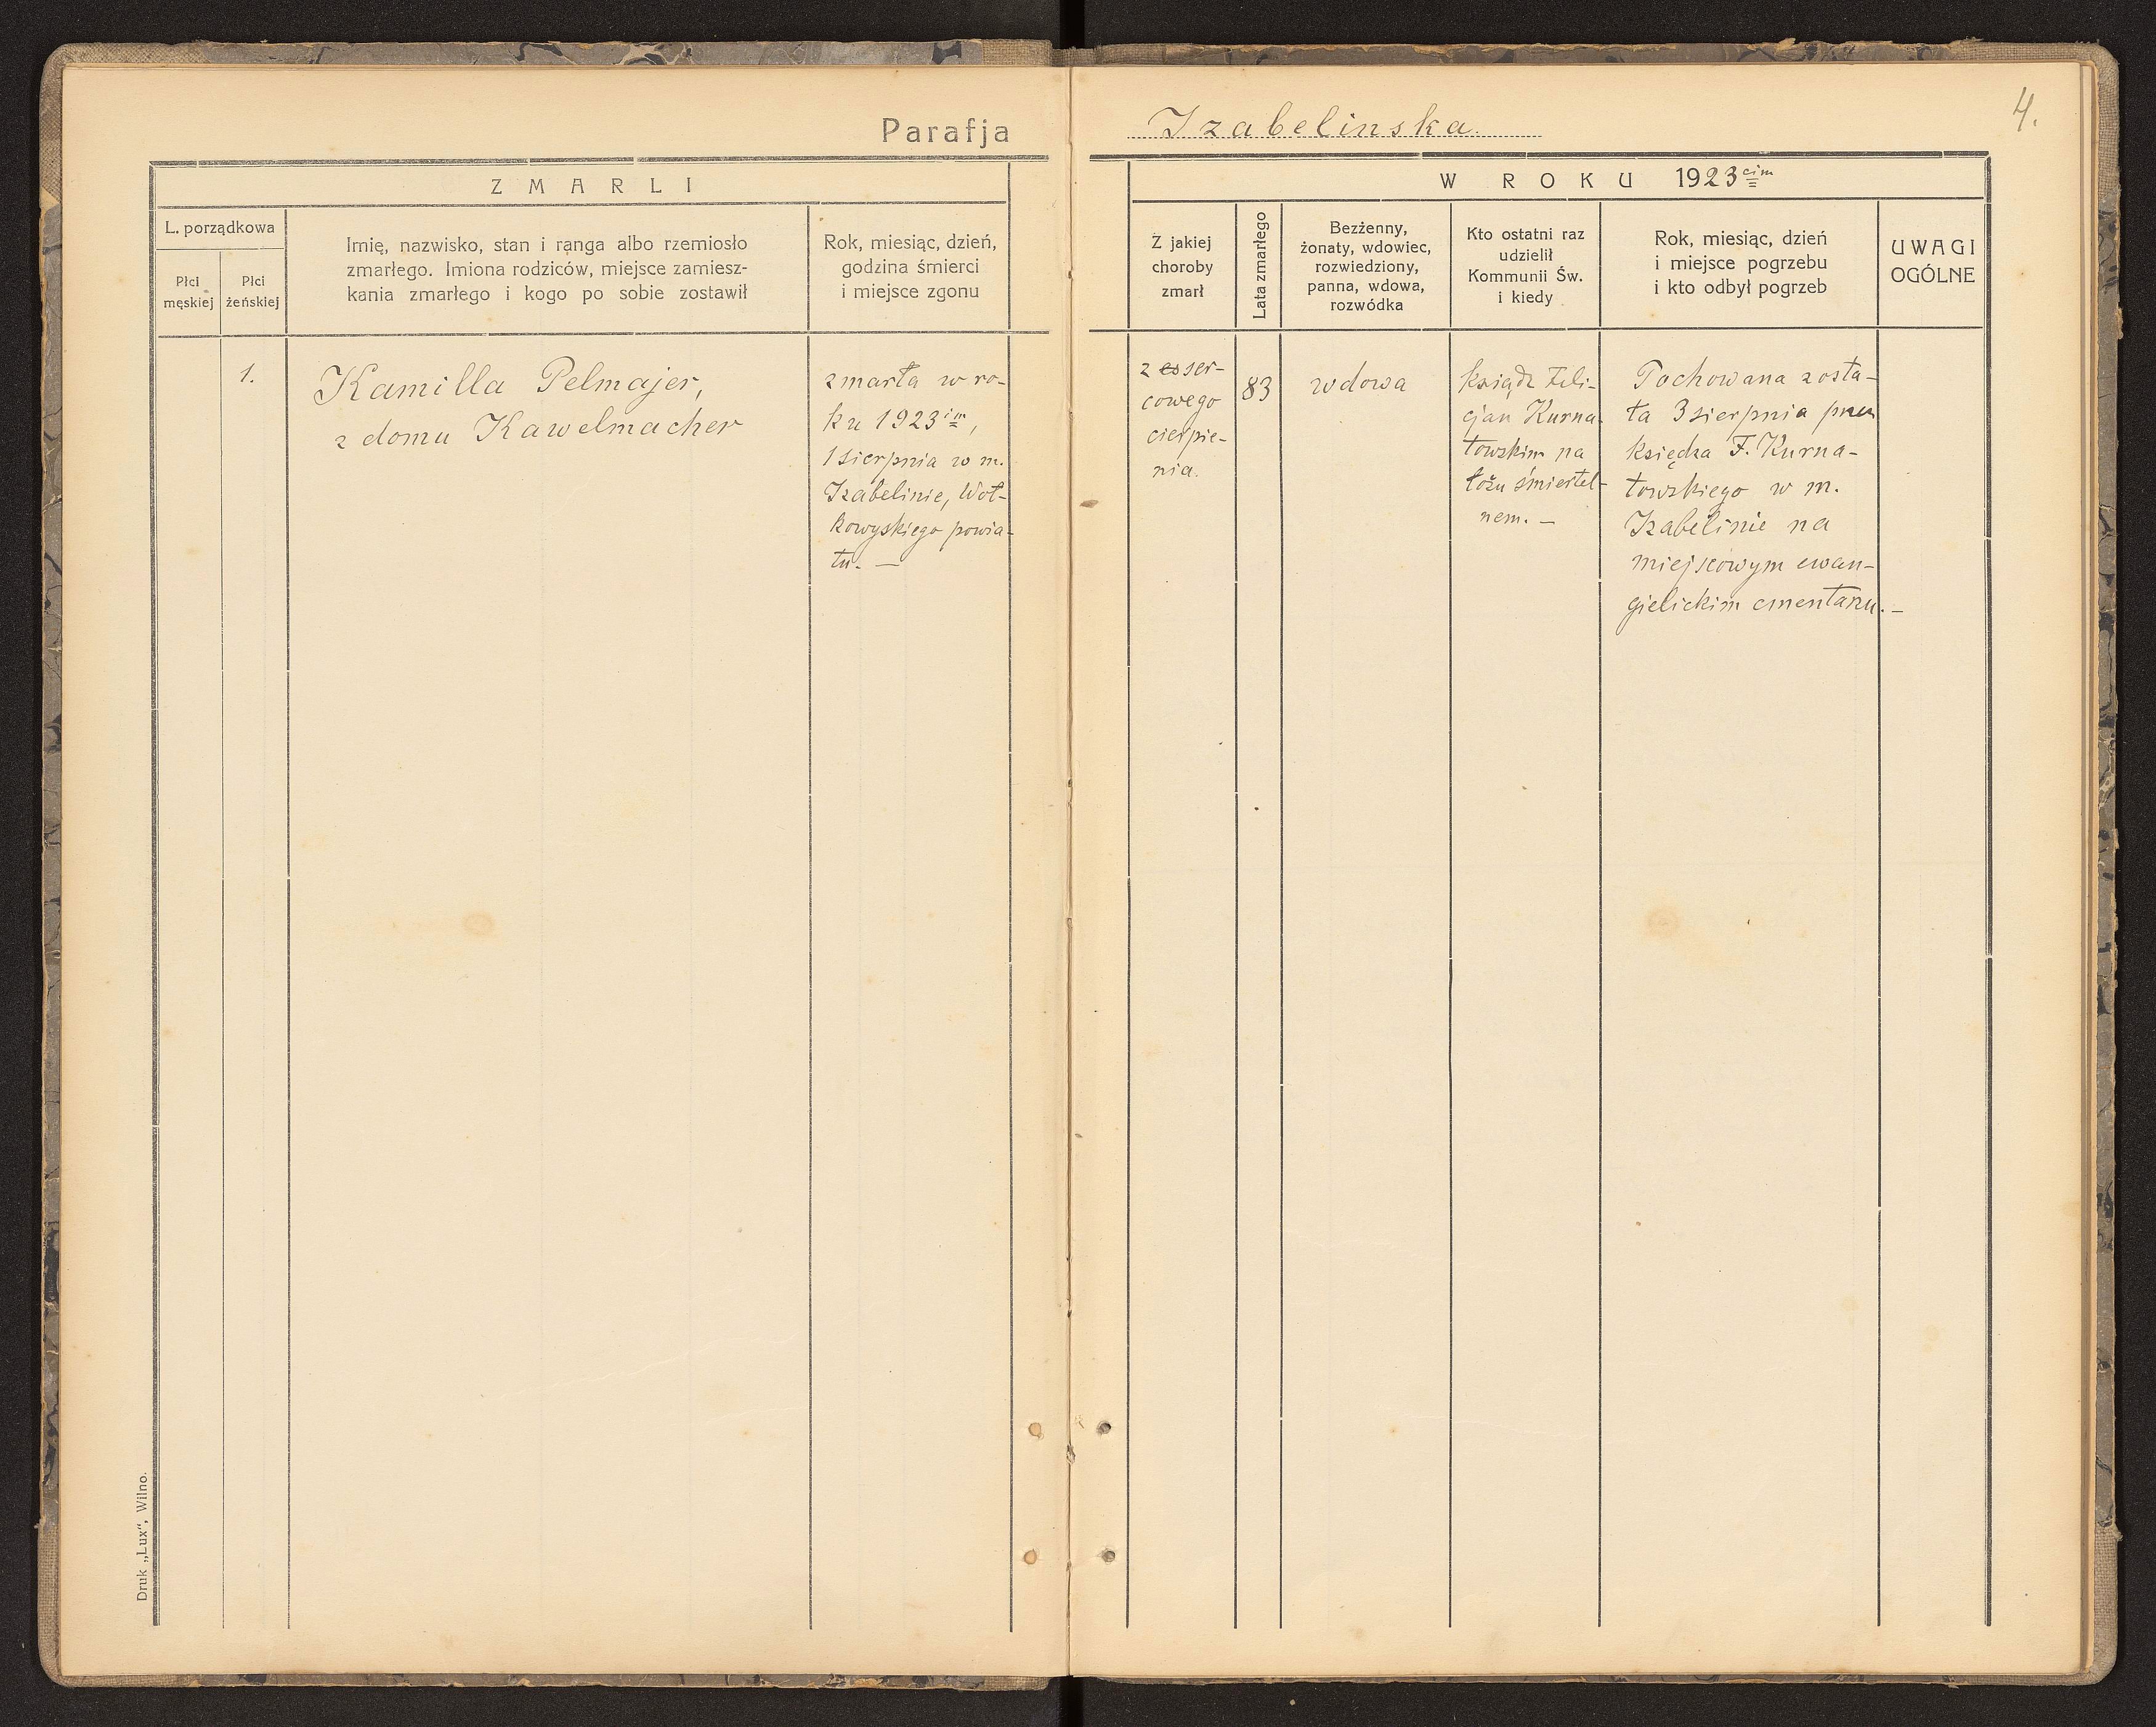 Parafja Izabelinska.
4.
ZMARLI
W ROKU 1923cim
L. porządkowa
Płci
męskiej
Płci
żeńskiej
Imię, nazwisko, stan i ranga albo rzemiosło
zmarłego. Imiona rodziców, miejsce zamiesz-
kania zmarłego i kogo po sobie zostawił
Rok, miesiąc, dzień,
godzina śmierci
i miejsce zgonu
Z jakiej
choroby
zmarł
Lata zmarłego
Bezżenny,
żonaty, wdowiec,
rozwiedziony,
panna, wdowa,
rozwódka
Kto ostatni raz
udzielił
Kommunii Św.
i kiedy
Rok, miesiąc, dzień
i miejsce pogrzebu
i kto odbył pogrzeb
UWAGI
OGÓLNE
1.
Kamilla Pelmajer,
z domu Kawelmacher
zmarła w ro-
ku 1923im,
1 sierpnia w m.
Izabelinie, Woł-
kowyskiego powia-
tu. —
z ser-
cowego
cierpie-
nia.
83
wdowa
ksiądz Feli-
cjan Kurna-
towskim na
łożu śmiertel-
nem. —
Pochowana zosta-
ła 3 sierpnia przez
księdza F. Kurna-
towskiego w m.
Izabelinie na
miejscowym ewan-
gielickim cmentarzu. —
Druk „Lux“, Wilno.